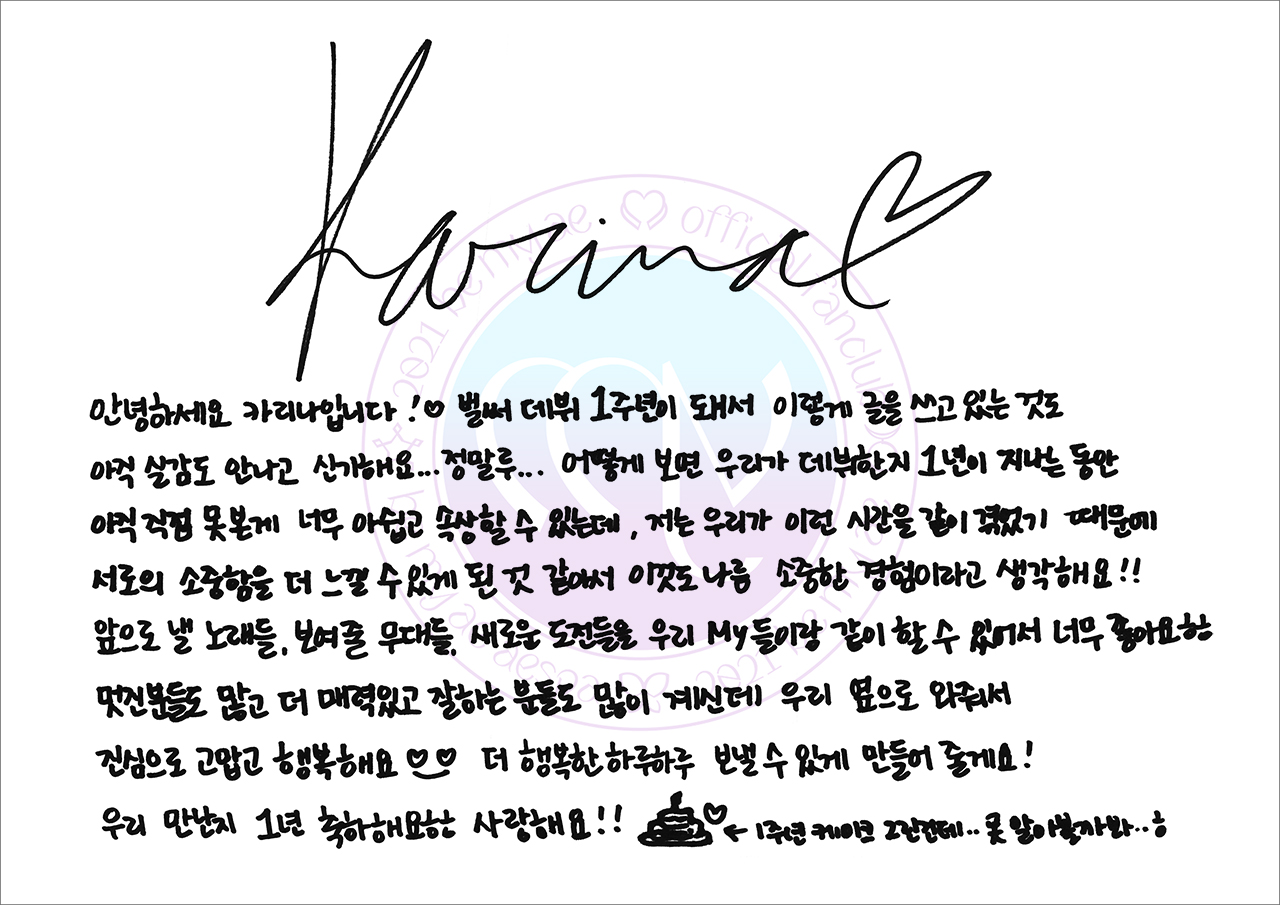 Karina♡
안녕하세요 카리나입니다!♡ 벌써 데뷔 1주년이 돼서 이렇게 글을 쓰고 있는 것도
아직 실감도 안나고 신기해요...정말루... 어떻게 보면 우리가 데뷔한지 1년이 지나는 동안
아직 직접 못본게 너무 아쉽고 속상할 수 있는데, 저는 우리가 이런 시간을 같이 겪었기 때문에
서로의 소중함을 더 느낄 수 있게 된 것 같아서 이것도 나름 소중한 경험이라고 생각해요!!
앞으로 낼 노래들, 보여줄 무대들, 새로운 도전들을 우리 My들이랑 같이 할 수 있어서 너무 좋아요ㅎㅎ
멋진분들도 많고 더 매력있고 잘하는 분들도 많이 계신데 우리 옆으로 와줘서
진심으로 고맙고 행복해요♡‿♡ 더 행복한 하루하루 보낼 수 있게 만들어 줄게요!
우리 만난지 1년 축하해요ㅎㅎ 사랑해요!! ♡ ← 1주년 케이크 그린건데.. 못 알아볼까봐..ㅎ
2021 be my ae ♡ official fanclub of aespa